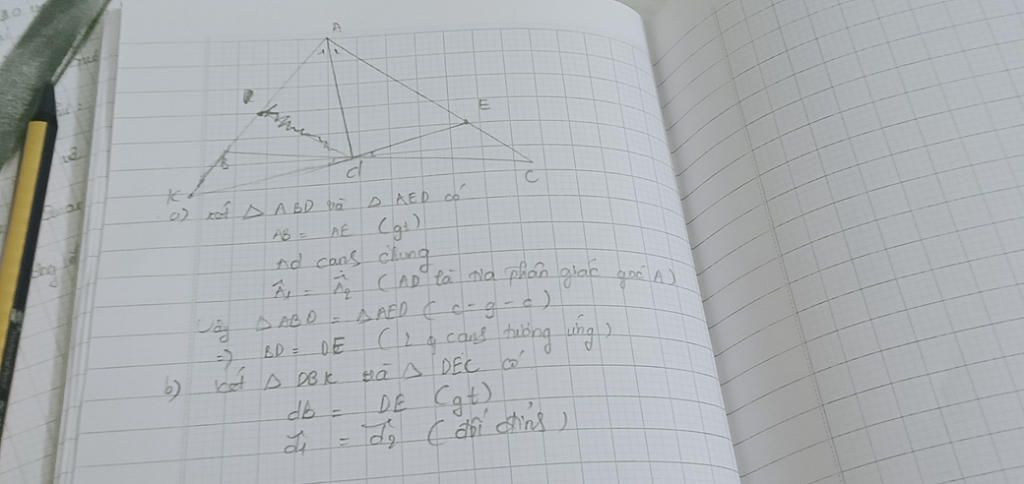 A
E
B
d
C
K
a) xét △ ABD và △ AED có
AB = AE (gt)
Ad cạnh chung
Â1 = Â2 (AD là tia phân giác góc A)
Vậy △ABD = △AED (c-g-c)
=> BD = DE (2 cạnh tương ứng)
b) xét △ DBK và △ DEC có
db = DE (gt)
d̂1 = d̂2 (đối đỉnh)